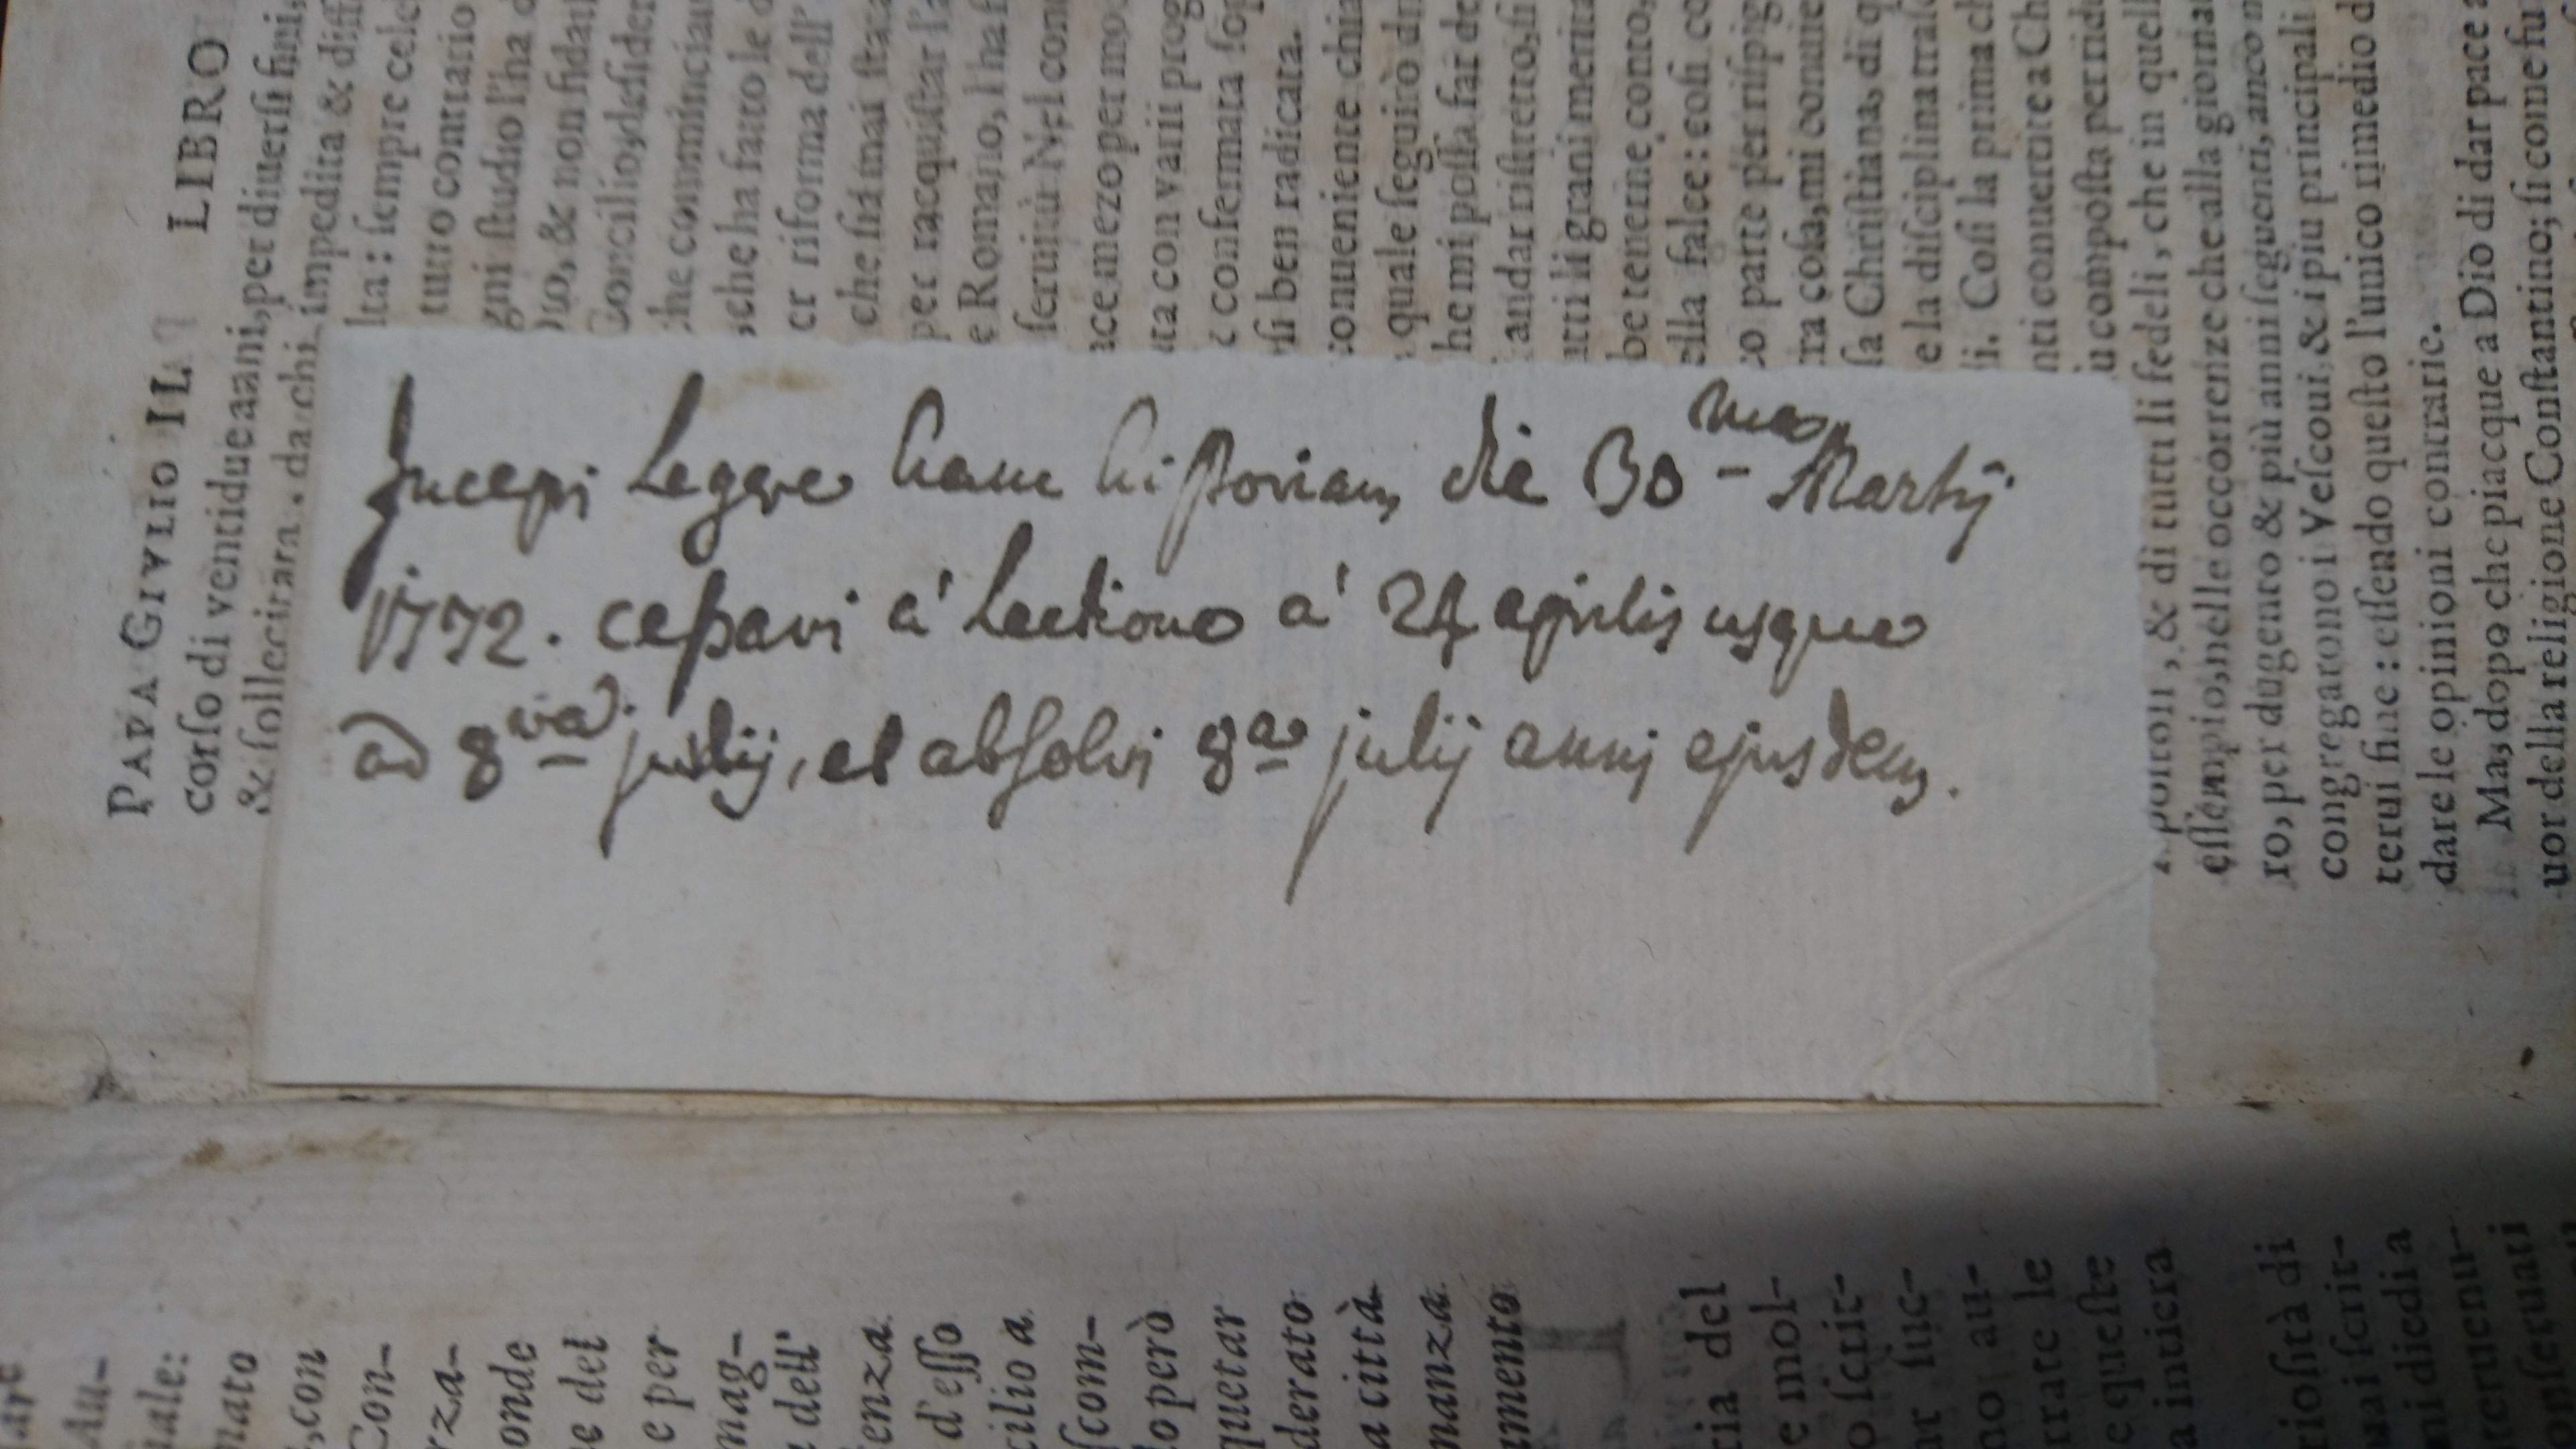 Incepi Legere hanc historiam die 30ma Martij
1772. cessavi á Lectione á 24 aprilis usque
ad 8va julij, et absolvi 8a julij anni ejusdem.
PAPA GIVLIO II.
LIBRO
corso di ventidue anni, per diuersi fini,
& sollecitata. da chi impedita & diff
lta: sempre cele
tutto contrario
gni studio l'ha
uo, & non fidan
Concilio, desider
he cominciau
che ha fatto le
er riforma dell'
che sia mai stat
per racquistar l'a
e Romano, l'ha
seruitù Nel con
ace mezo per mo
ta con varii prog
confermata
si ben radicata.
conueniente chia
quale seguirò
he mi possa far de
andar ristretto, si
utti li grani merita
be tenerne conto,
ella falce: cosi co
parte per rispig
ra cosa, mi conuie
sa Christiana, di q
e la disciplina tral
li. Cosi la prima ch
nti conuertire a Ch
ù composta per ridu
postoli, & di tutti li fedeli, che in quell
essempio, nelle occorrenze che alla giornat
ro, per dugento & più anni seguenti, anco
congregarono i Vescoui, & i piu principali
terui fine: essendo questo l'unico rimedio d
dare le opinioni contrarie.
Ma, dopo che piacque a Dio di dar pace a
uor della religione Constantino; si come fu
Au-
uale:
nato
, con
Con-
rza-
onde
e del
e per
mag-
dell'
enza
d'esso
cilio a
scom-
lo però
quetar
derato
a città
nanza
umento
tia del
e mol-
o scrit-
ar suc-
no au-
rrate le
e queste
a intiera
riosità di
uai scrit-
ni diedi a
onseruati